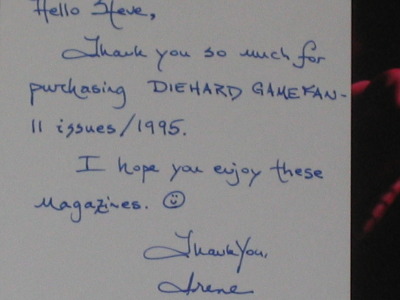 Hello Steve,
Thank you so much for
purchasing DIEHARD GAMEFAN-
11 issues/1995.
I hope you enjoy these
magazines. ☺
Thank You,
Irene